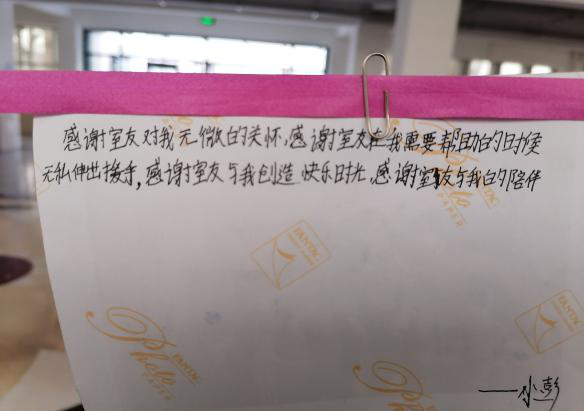 感谢室友对我无微的关怀.感谢室友在我需要帮助的时候
无私伸出援手,感谢室友与我创造快乐时光.感谢室友与我的陪伴
Photo
PAPER
FANTAC
Photo
PAPER
FANTAC
——小彭